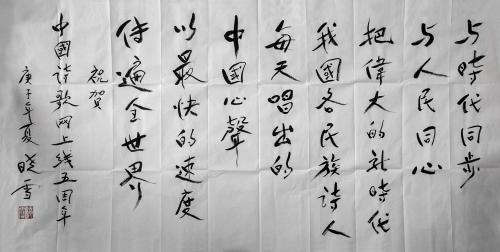 与時代同步
与人民同心
把偉大的新時代
我國各民族詩人
每天唱出的
中国心聲
以最快的速度
传遍全世界
祝賀
中國詩歌网上线五周年
庚子年夏 晓雪